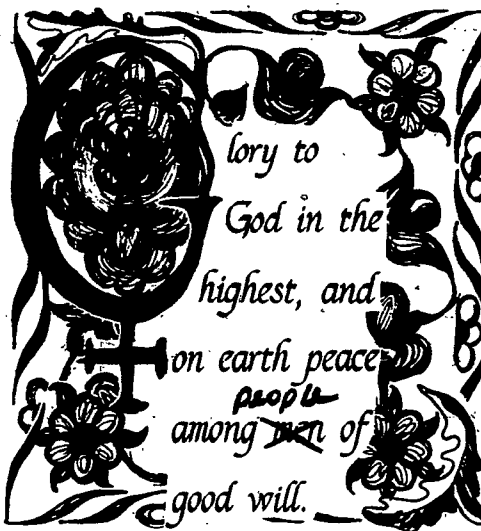 Glory to
God in the
highest, and
on earth peace
people
among men of
good will.